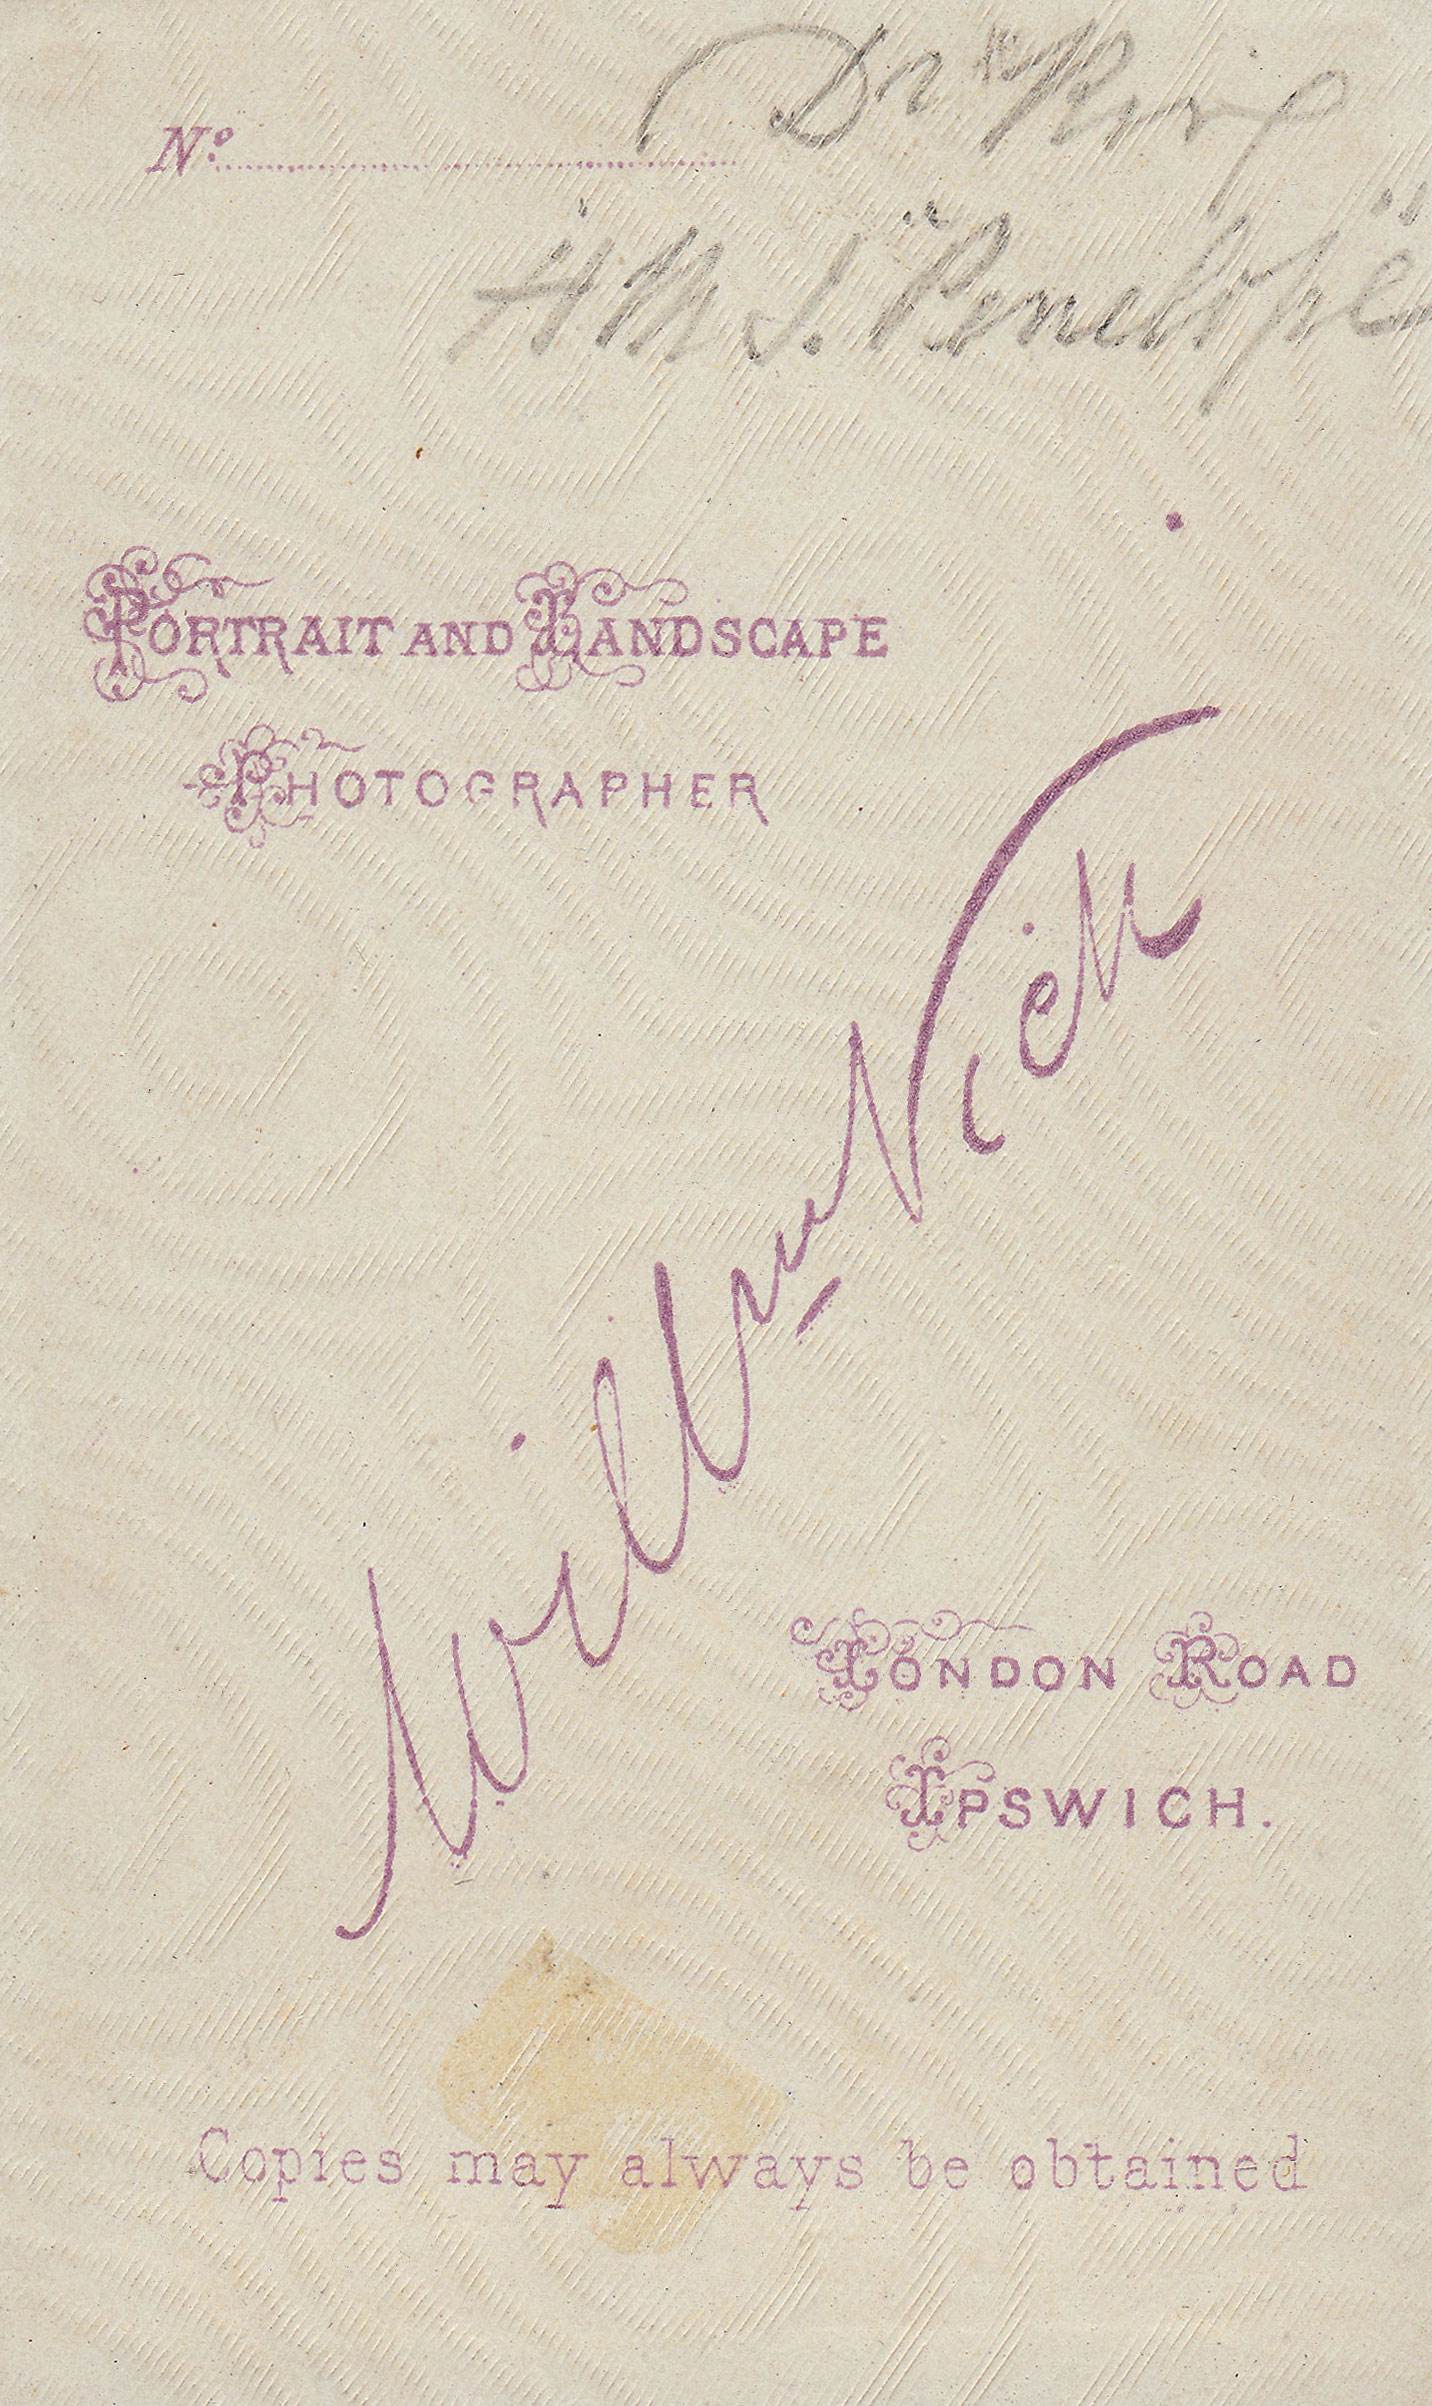 Dr
No
H.M.S. "Penelope"
PORTRAIT AND LANDSCAPE
PHOTOGRAPHER
Willm Vick
LONDON ROAD
IPSWICH.
Copies may always be obtained